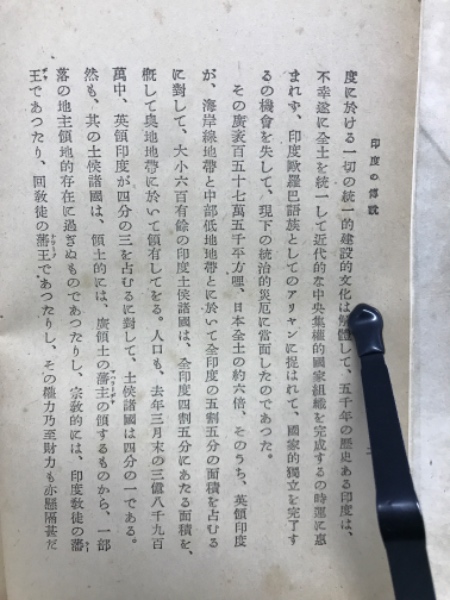 印度の傳説
度に於ける一切の統一的建設的文化は解體して、五千年の歴史ある印度は、
不幸遂に全土を統一して近代的な中央集權的國家組織を完成するの時運に惠
まれず、印度歐羅巴語族としてのアリヤンに捉はれて、國家的獨立を完了す
るの機會を失して、現下の統治的災厄に當面したのであつた。
その廣袤百五十七萬五千平方哩、日本全土の約六倍、そのうち、英領印度
が、海岸線地帶と中部低地地帶とに於いて全印度の五割五分の面積を占むる
に對して、大小六百有餘の印度土侯諸國は、全印度四割五分にあたる面積を、
概して奥地地帶に於いて領有してをる。人口も、去年三月末の三億八千九百
萬中、英領印度が四分の三を占むるに對して、土侯諸國は四分の一である。
然も、其の土侯諸國は、領土的には、廣領土の藩主の領するものから、一部
落の地主領地的存在に過ぎぬものであつたりし、宗教的には、印度教徒の藩
王であつたり、回教徒の藩王であつたりし、その權力乃至財力も亦懸隔甚だ